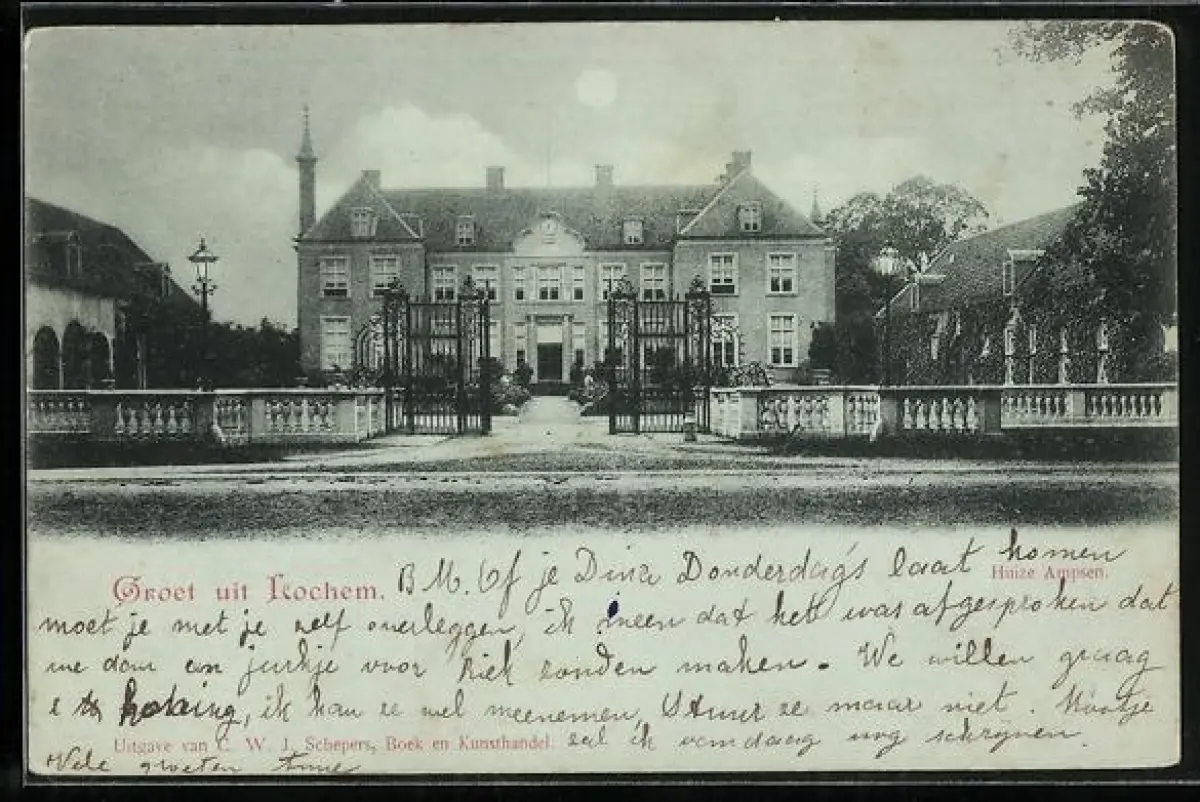 Groet uit Lochem. B M. Of je Dina Donderdag's laat komen
Huize Ampsen.
moet je met je zelf overleggen, ik meen dat het was afgesproken dat
we dan een jurkje voor Riek zouden maken. We willen graag
ik kan ze wel meenemen, stuur ze maar niet. Kaatje
Uitgave van C. W. J. Schepers, Boek en Kunsthandel. zal ik vandaag nog schrijven.
Vele groeten